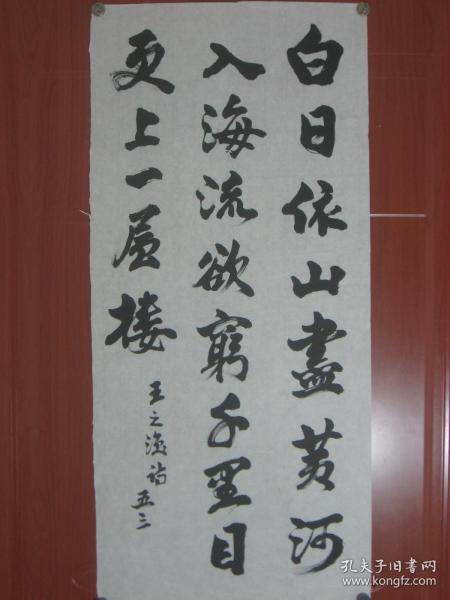 白日依山盡黄河
入海流欲窮千里目
更上一层楼
王之渔诗 五三
孔夫子旧书网
www.kongfz.com